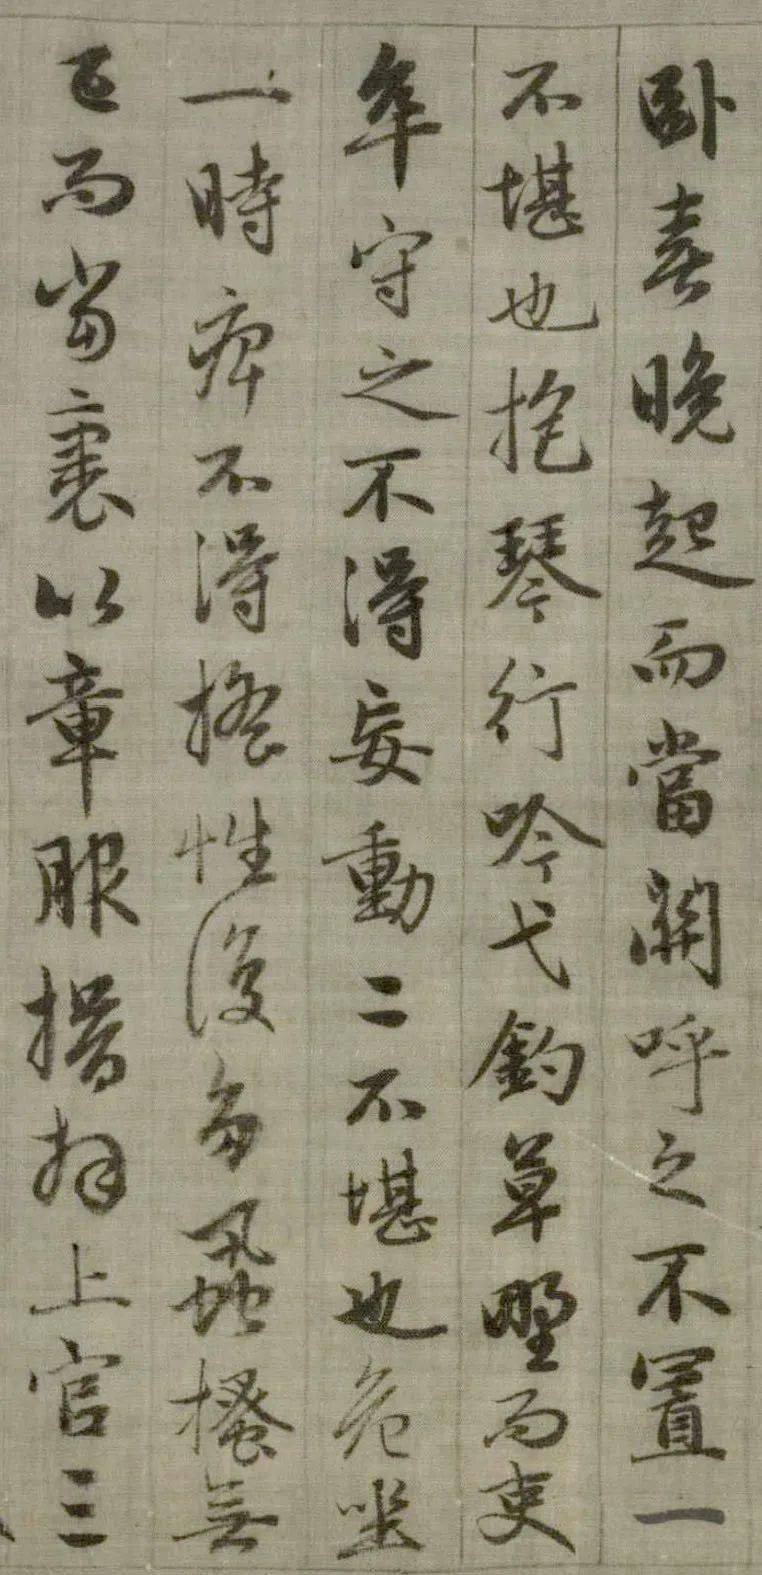 臥喜晚起而當關呼之不置一
不堪也抱琴行吟弋釣草野而吏
卒守之不得妄動二不堪也危坐
一時痹不得搖性復多蝨搔無
已而當裹以章服揖拜上官三